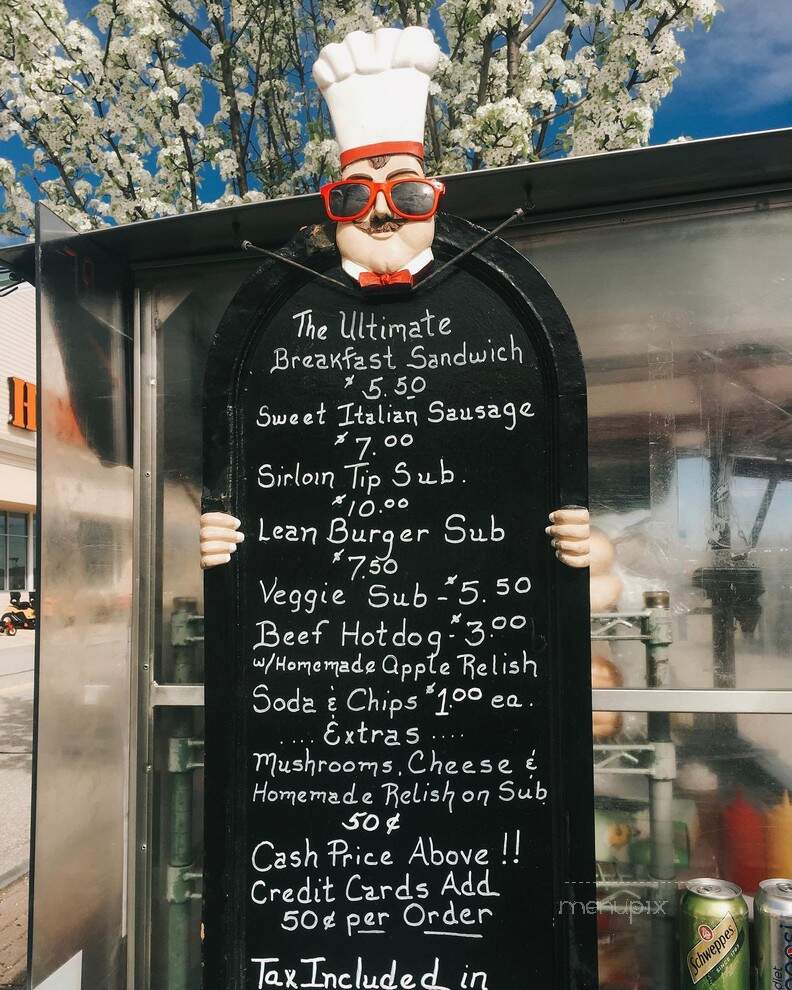 The Ultimate
Breakfast Sandwich
$5.50
Sweet Italian Sausage
$7.00
Sirloin Tip Sub.
$10.00
Lean Burger Sub
$7.50
Veggie Sub - $5.50
Beef Hotdog - $3.00
w/Homemade Apple Relish
Soda & Chips $1.00 ea.
.... Extras ....
Mushrooms, Cheese &
Homemade Relish on Sub
50¢
Cash Price Above !!
Credit Cards Add
50¢ per Order
Tax Included in
menupix
Schweppes
SINCE 1783
diet
pepsi
H